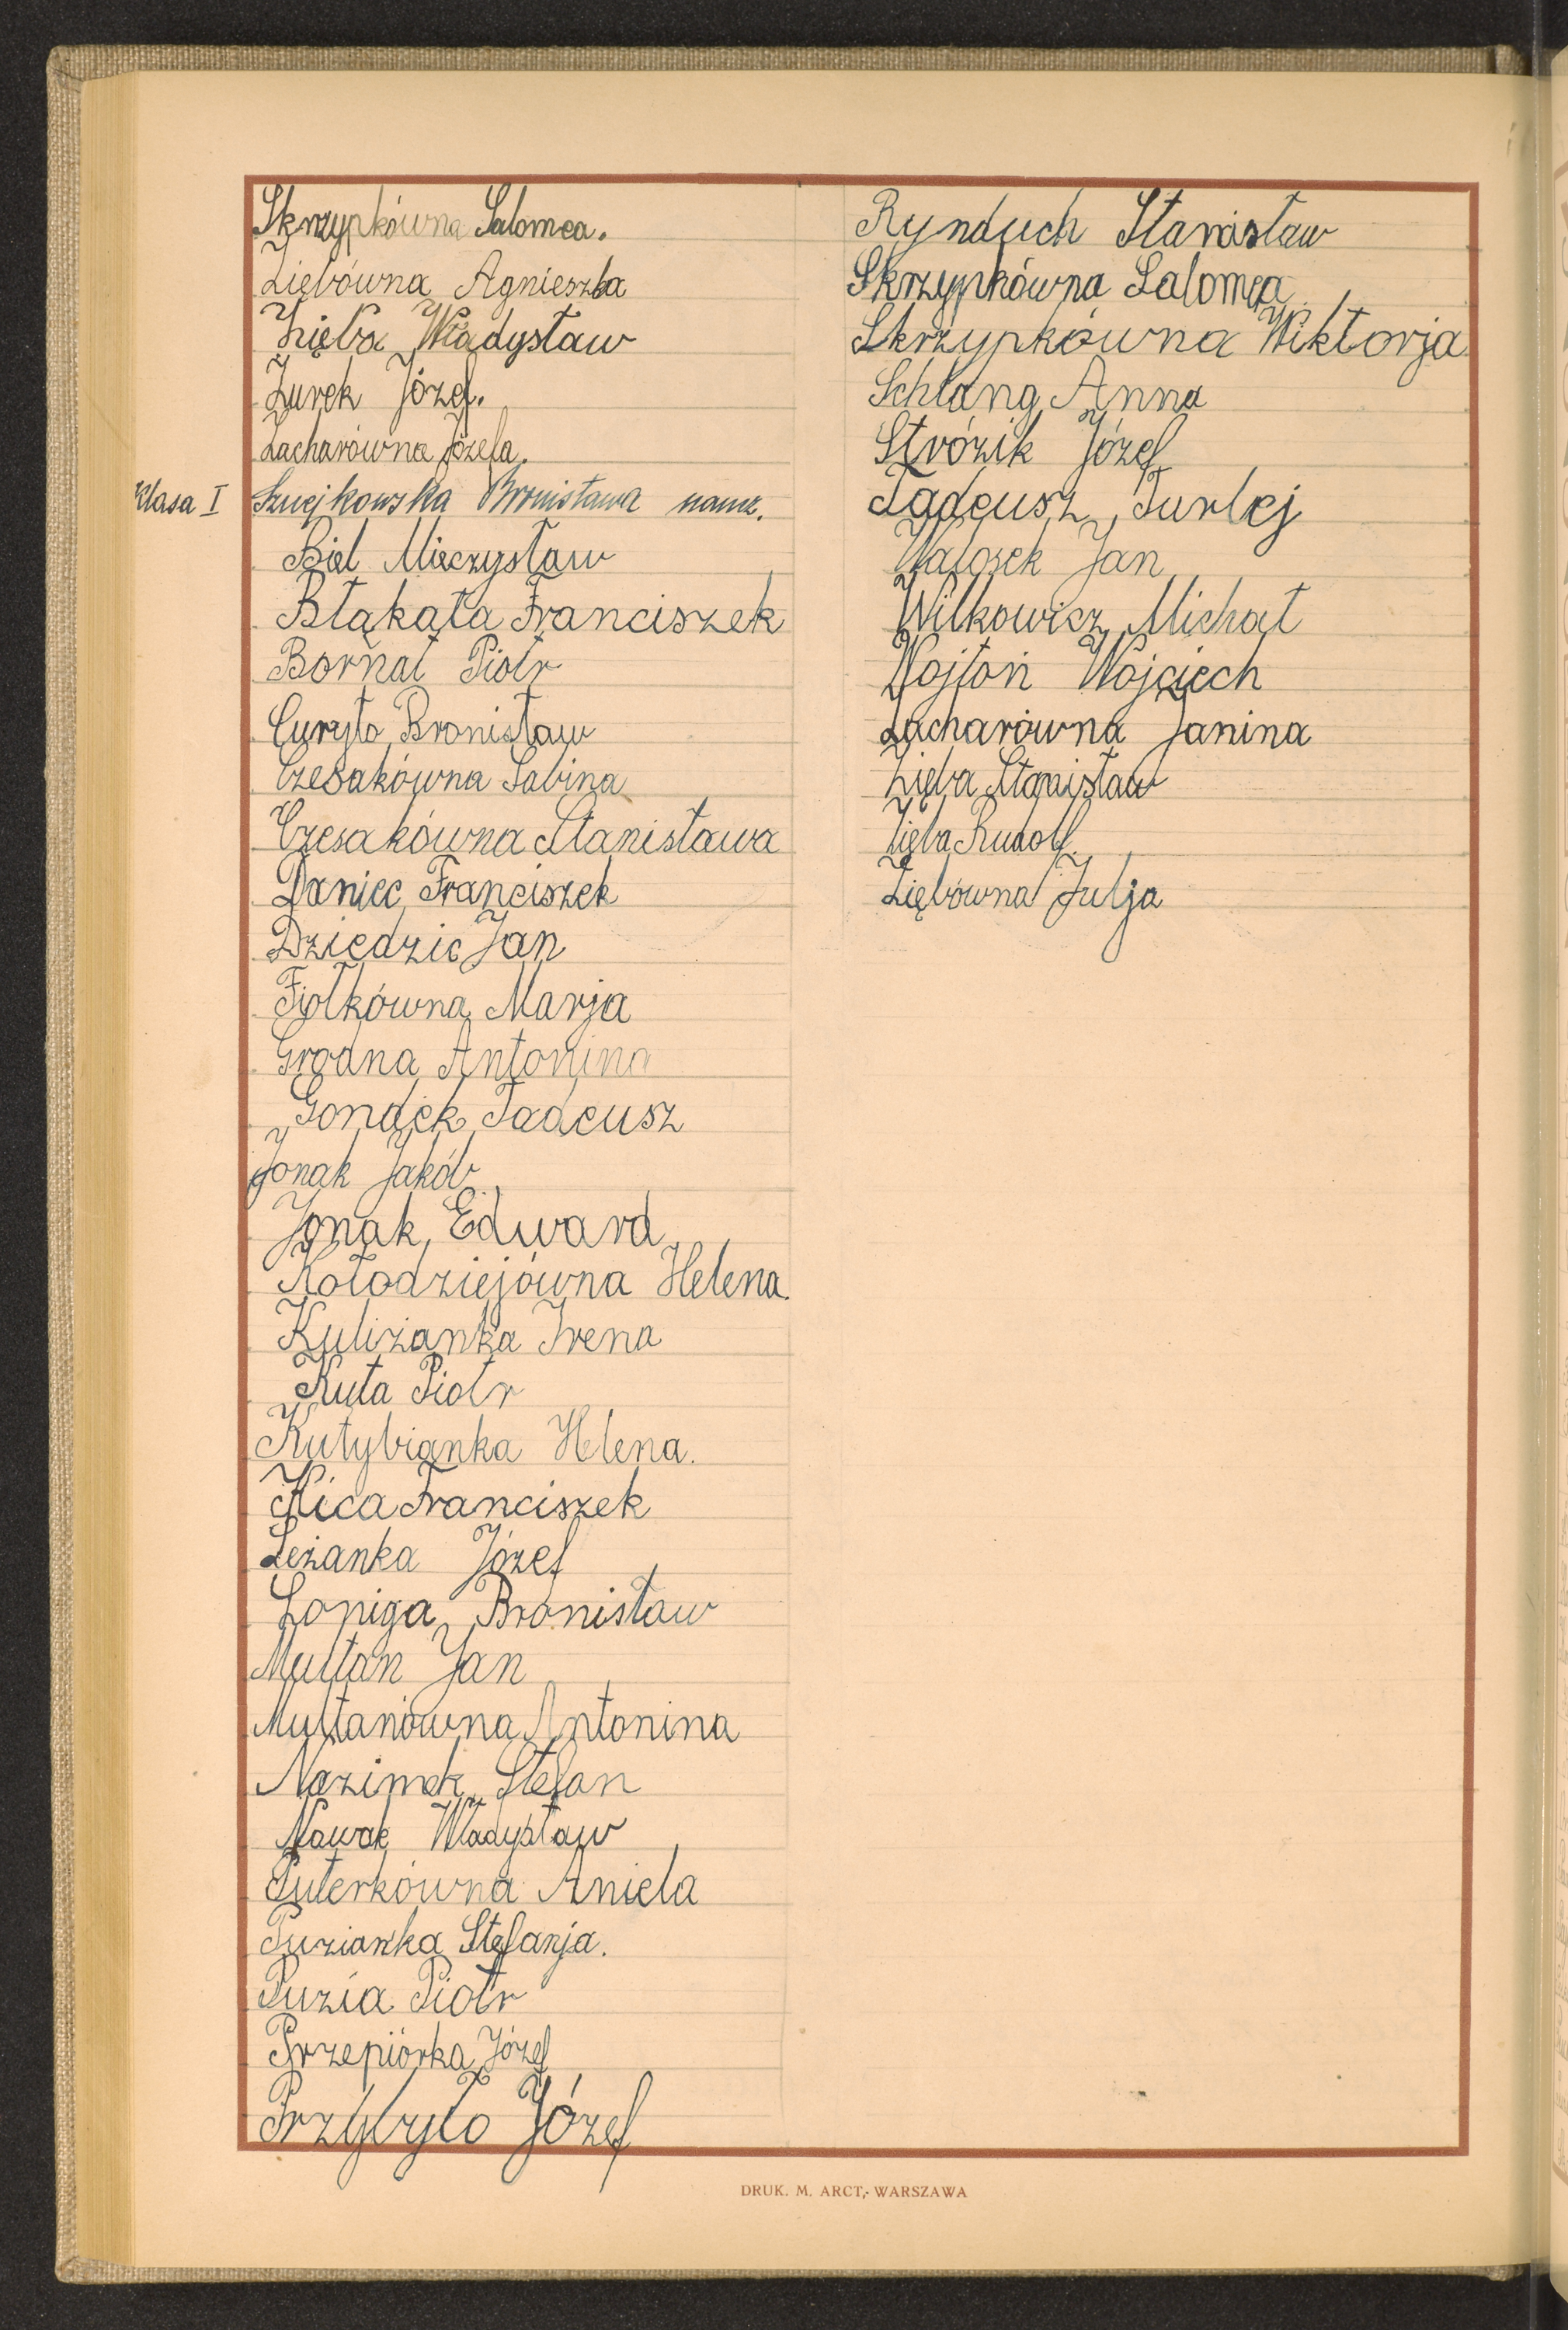 Skrzypkówna Salomea.
Ziębówna Agnieszka
Zięba Władysław
Żurek Józef.
Zacharówna Józefa.
Klasa I Szuejkowska Bronisława naucz.
Biel Mieczysław
Błąkała Franciszek
Bornat Piotr
Curyło Bronisław
Czesakówna Sabina
Czesakówna Stanisława
Daniec Franciszek
Dziedzic Jan
Fiołkówna Marja
Grodna Antonina
Gondek Tadeusz
Jonak Jakób
Jonak Edward
Kołodziejówna Helena.
Kuliżanka Irena
Kuta Piotr
Kutybianka Helena.
Kica Franciszek
Leżanka Józef
Łopiga Bronisław
Multan Jan
Multanówna Antonina
Nazimek Stefan
Nowak Władysław
Puterkówna Aniela
Puzianka Stefanja.
Puzia Piotr
Przepiórka Józef
Przybyło Józef
Rynduch Stanisław
Skrzypkówna Salomea
Skrzypkówna Wiktorja
Schlang Anna
Strózik Józef
Tadeusz Turlej
Walosek Jan
Wilkowicz Michał
Wojtoń Wojciech
Zacharówna Janina
Zięba Stanisław
Zięba Rudolf.
Ziębówna Julja
DRUK. M. ARCT,- WARSZAWA